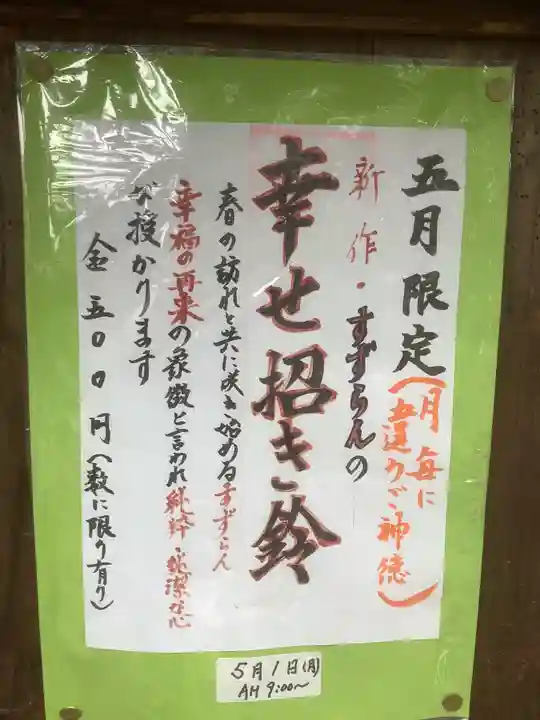 五月限定(月毎に
五違うご神徳)
新作・すずらんの
幸せ招き鈴
春の訪れと共に咲き始めるすずらん
幸福の再来の象徴と言われ純粋・純潔な心
が授かります
金五〇〇円(数に限り有り)
5月1日(月)
AM 9:00〜